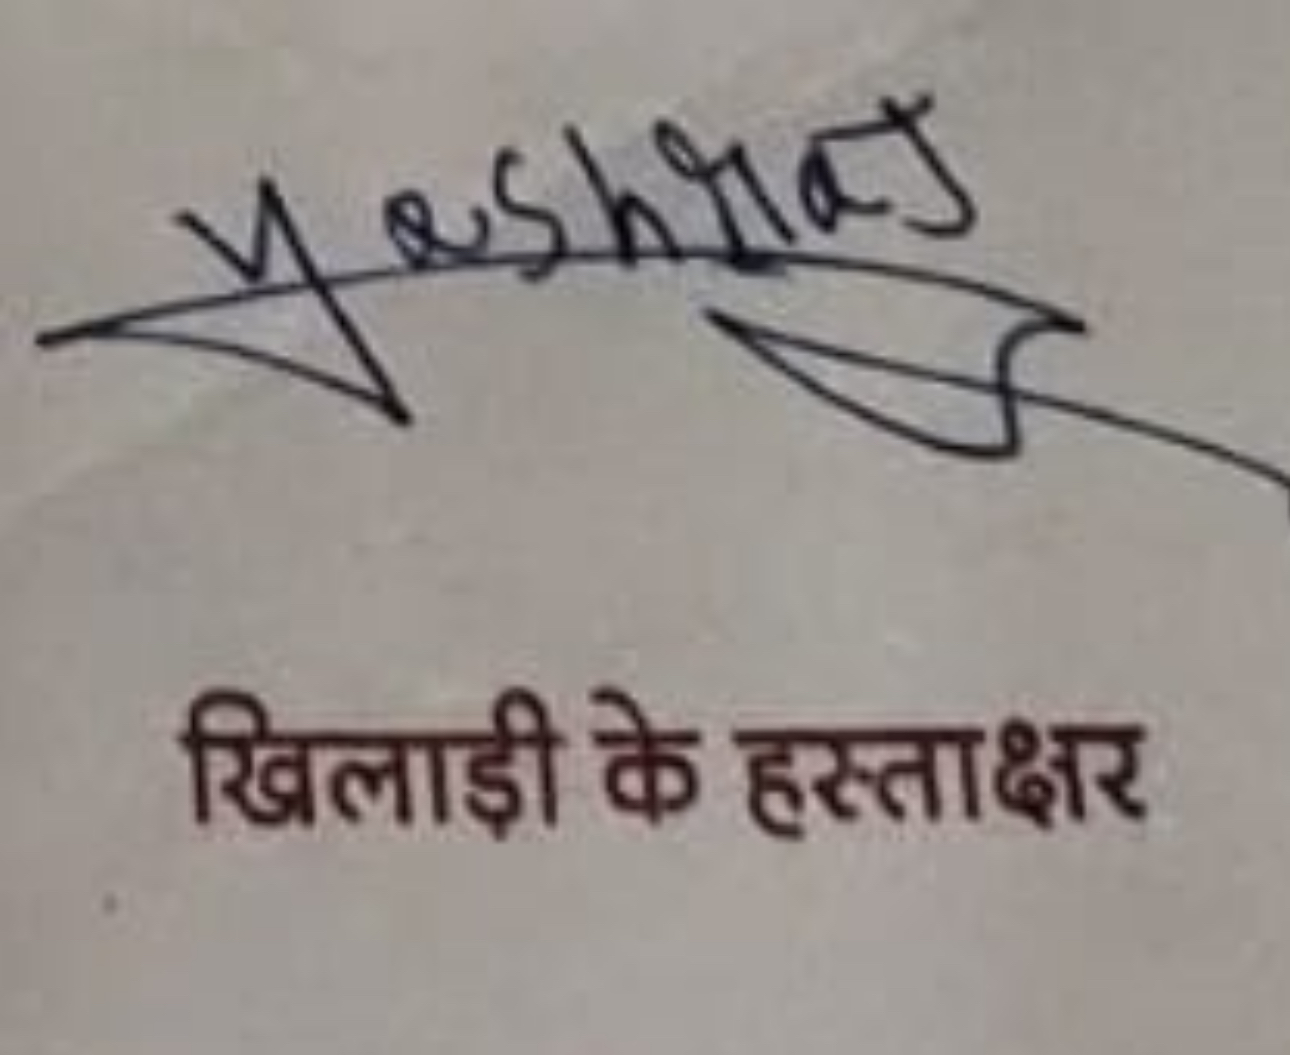 Yashraj
खिलाड़ी के हस्ताक्षर